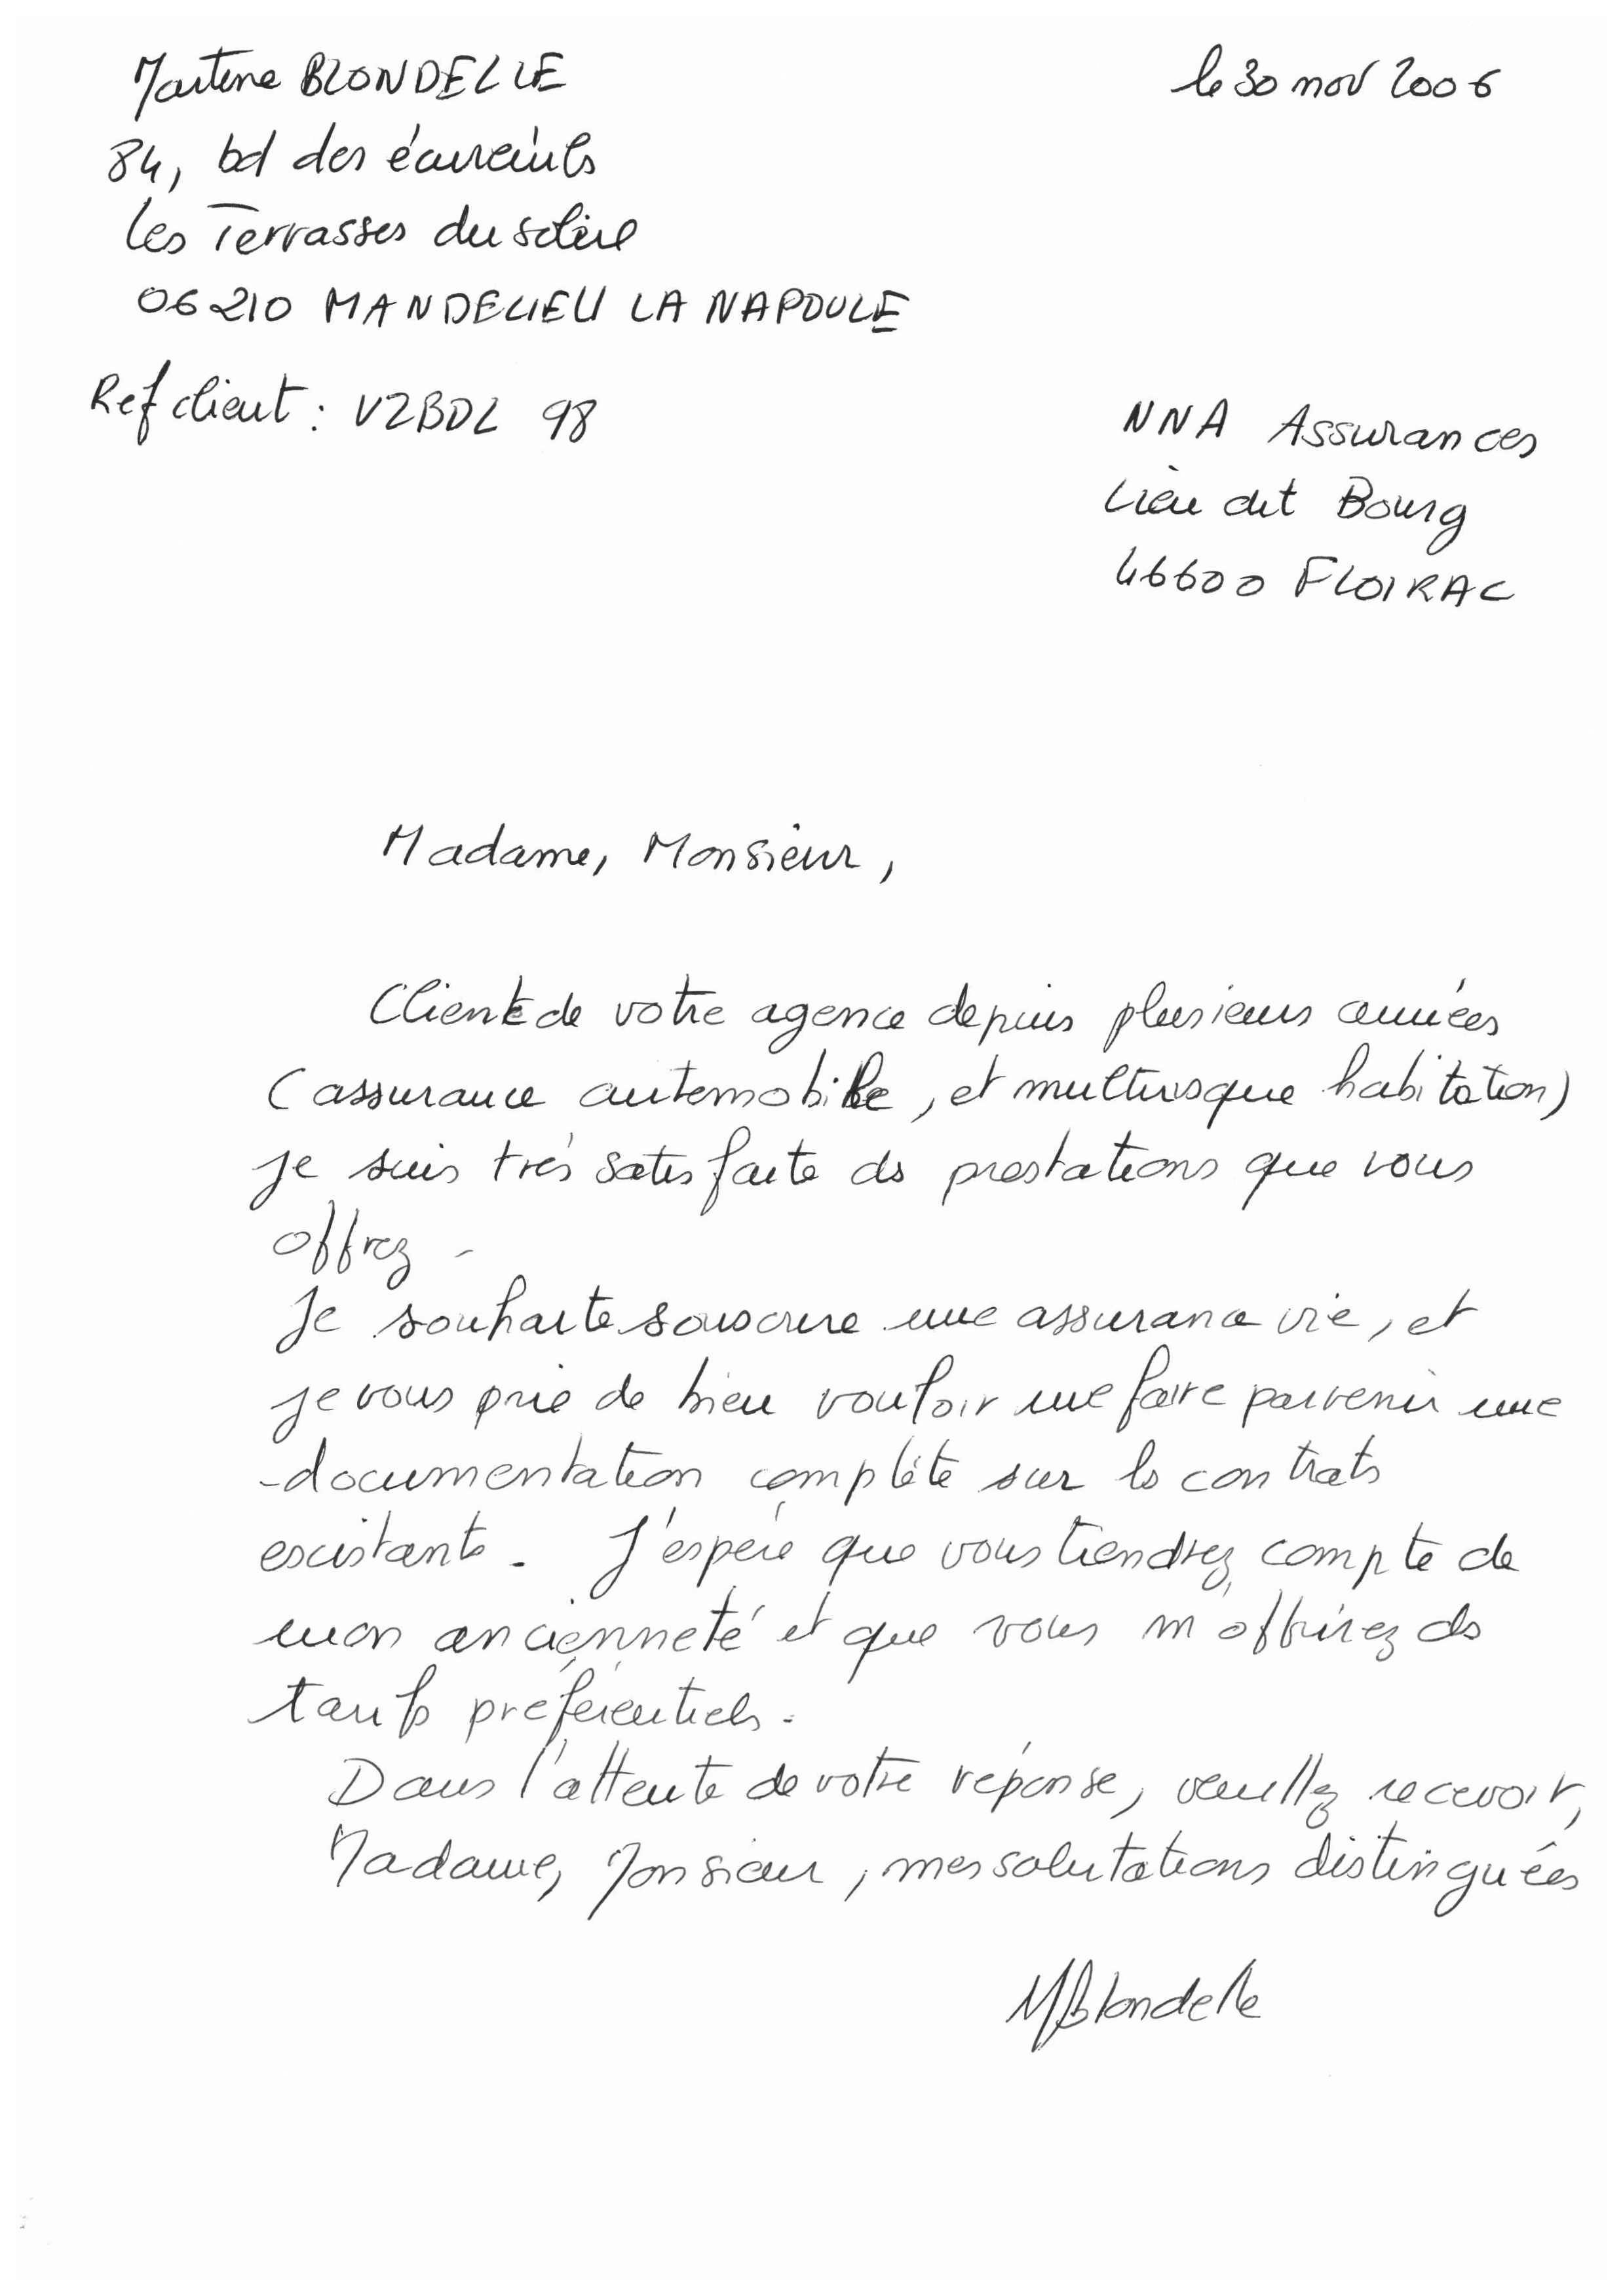 Martine BLONDELLE
le 30 nov 2006
84, bd des écureuils
Les Terrasses du soleil
06210 MANDELIEU LA NAPOULE
Ref client : VZBDL 98
NNA Assurances
Lieu dit Bourg
46600 FLOIRAC
Madame, Monsieur,
Cliente de votre agence depuis plusieurs années
(assurance automobile, et multirisque habitation)
je suis très satisfaite des prestations que vous
offrez.
Je souhaite souscrire une assurance vie, et
je vous prie de bien vouloir me faire parvenir une
documentation complète sur les contrats
existants. J'espère que vous tiendrez compte de
mon ancienneté et que vous m'offrirez des
tarifs préférentiels.
Dans l'attente de votre réponse, veuillez recevoir,
Madame, Monsieur, mes salutations distinguées
MBlondelle